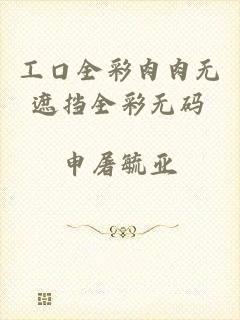 工口全彩肉肉无
遮挡全彩无码
申屠毓亚